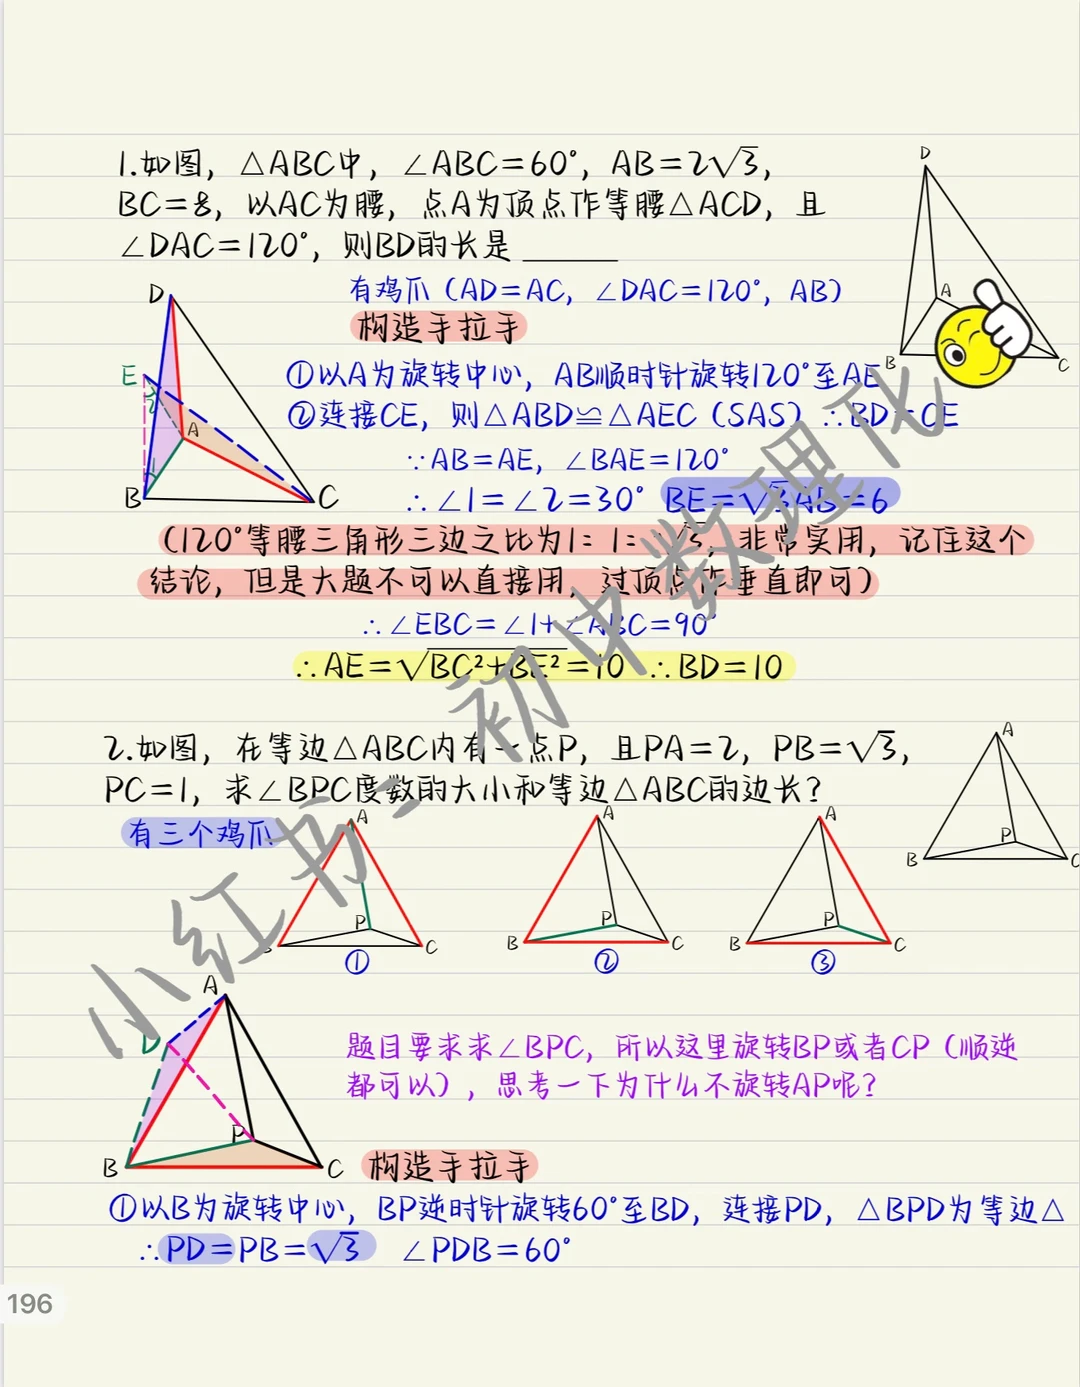 1.如图，△ABC中，∠ABC=60°，AB=2√3，
BC=8，以AC为腰，点A为顶点作等腰△ACD，且
∠DAC=120°，则BD的长是 ______
D
A
B
C
有鸡爪（AD=AC，∠DAC=120°，AB）
构造手拉手
D
E
2
A
1
B
C
①以A为旋转中心，AB顺时针旋转120°至AE
②连接CE，则△ABD≌△AEC（SAS）∴BD=CE
∵AB=AE，∠BAE=120°
∴∠1=∠2=30° BE=√3AB=6
（120°等腰三角形三边之比为1：1：√3，非常实用，记住这个
结论，但是大题不可以直接用，过顶点作垂直即可）
∴∠EBC=∠1+∠ABC=90°
∴AE=√BC²+BE²=10 ∴BD=10
2.如图，在等边△ABC内有一点P，且PA=2，PB=√3，
PC=1，求∠BPC度数的大小和等边△ABC的边长？
A
P
B
C
有三个鸡爪
A
P
B
C
①
A
P
B
C
②
A
P
B
C
③
A
D
P
B
C
题目要求求∠BPC，所以这里旋转BP或者CP（顺逆
都可以），思考一下为什么不旋转AP呢？
构造手拉手
①以B为旋转中心，BP逆时针旋转60°至BD，连接PD，△BPD为等边△
∴PD=PB=√3 ∠PDB=60°
小红书：初中数理化
196